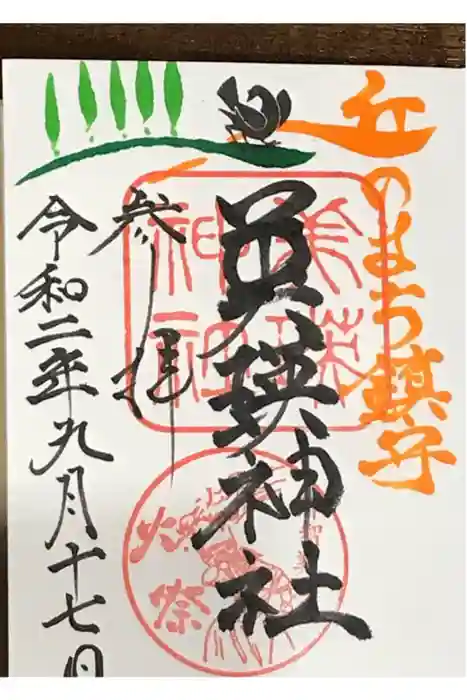 丘のまち鎮守
美瑛神社
美瑛
神社
火祭
参拝
令和二年九月十七日